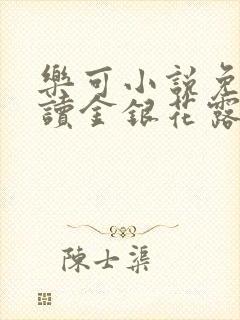 樂可小説免
讀金銀花露
陳士渠